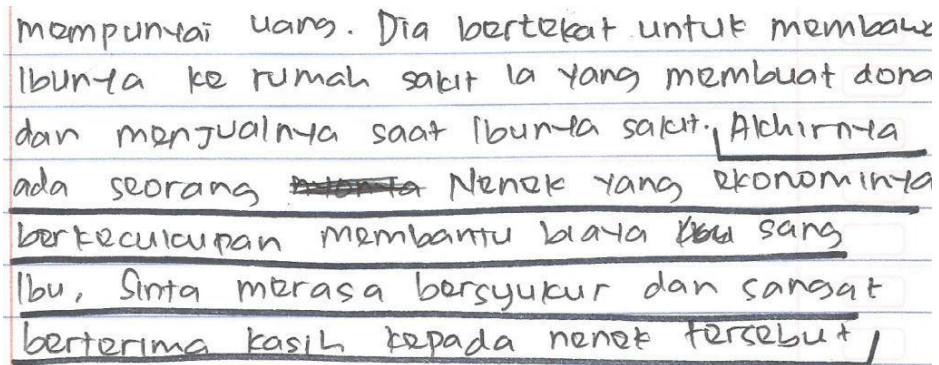 mempunyai uang. Dia bertekat untuk membawa
Ibunya ke rumah sakit Ia yang membuat dona
dan menjualnya saat Ibunya sakit. Akhirnya
ada seorang Nenek yang ekonominya
berkecukupan membantu biaya sang
Ibu, Sinta merasa bersyukur dan sangat
berterima kasih kepada nenek tersebut